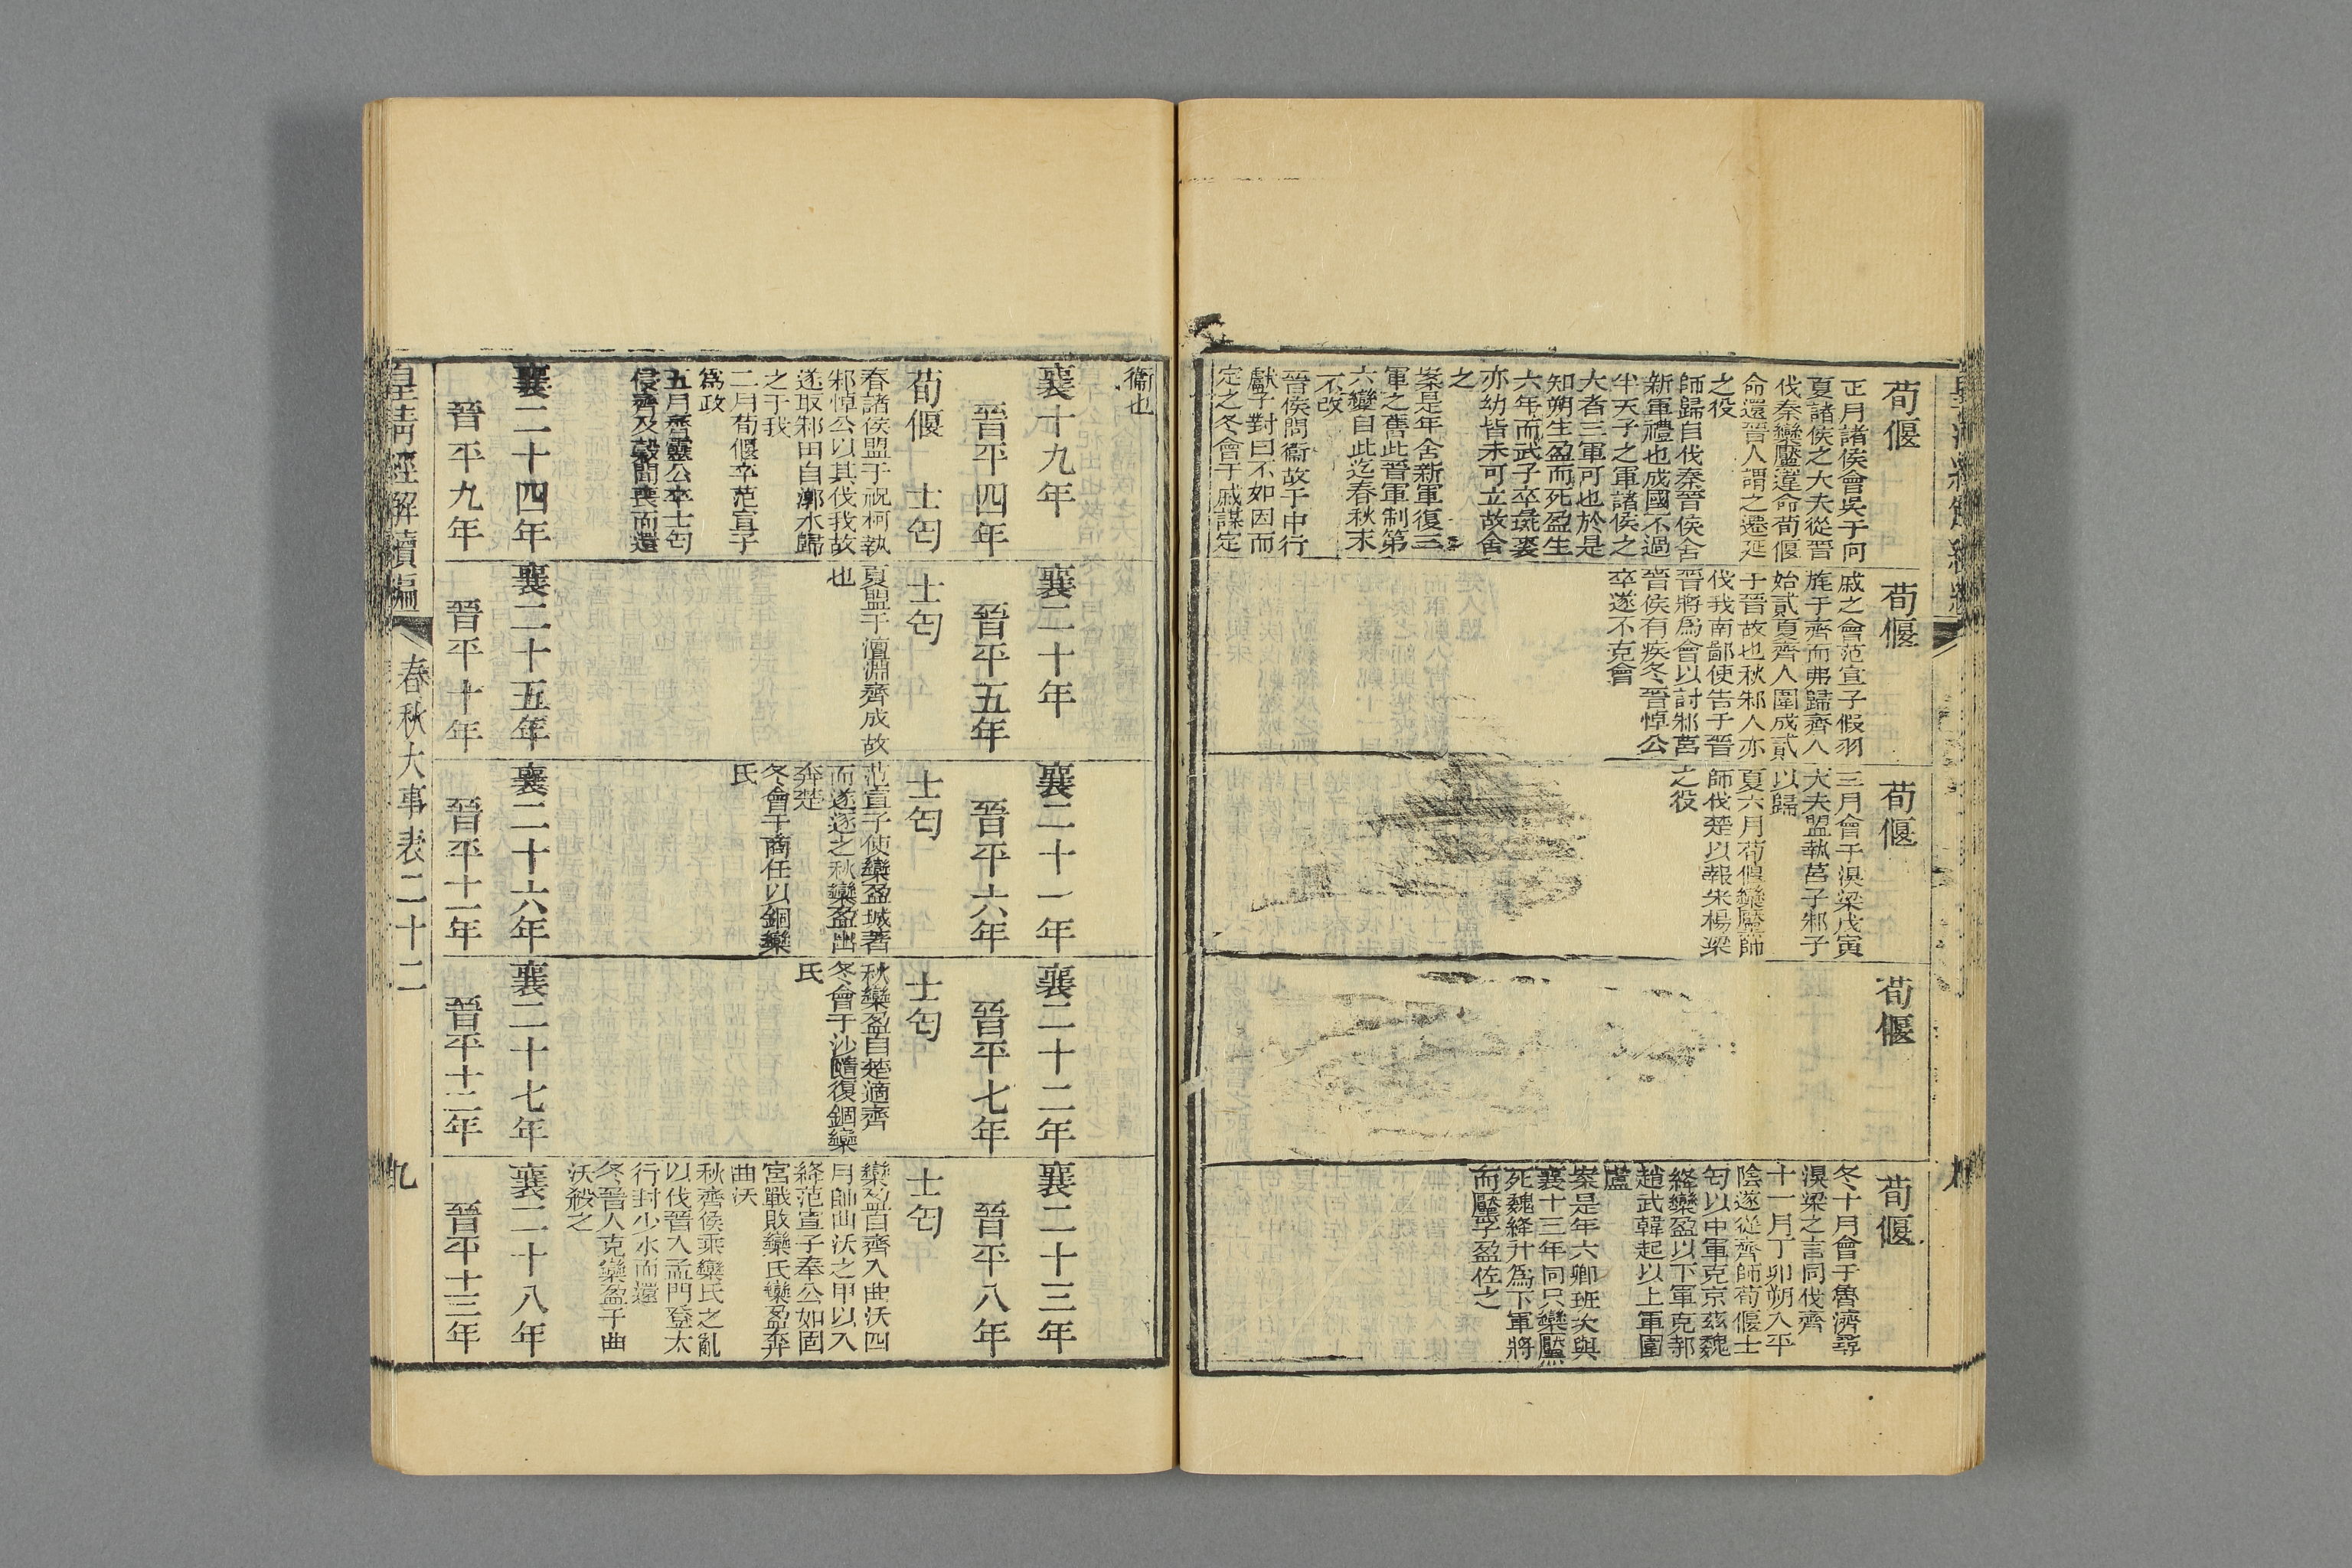 荀偃
正月諸侯會吳于向
夏諸侯之大夫從晉
伐秦欒黶違命荀偃
命還晉人謂之遷延
之役
師歸自伐秦晉侯舍
新軍禮也成國不過
半天子之軍諸侯之
大者三軍可也於是
知朔生盈而死盈生
六年而武子卒彘裘
亦幼皆未可立故舍
之
案是年舍新軍復三
軍之舊此晉軍制第
六變自此迄春秋末
不改
晉侯問衞故于中行
獻子對曰不如因而
定之冬會于戚謀定
荀偃
戚之會范宣子假羽
旄于齊而弗歸齊人
始貳夏齊人圍成貳
于晉故也秋邾人亦
伐我南鄙使告于晉
晉將爲會以討邾莒
晉侯有疾冬晉悼公
卒遂不克會
荀偃
三月會于湨梁戊寅
大夫盟執莒子邾子
以歸
夏六月荀偃欒黶帥
師伐楚以報宋楊梁
之役
荀偃
荀偃
冬十月會于魯濟尋
湨梁之言同伐齊
十一月丁卯朔入平
陰遂從齊師荀偃士
匄以中軍克京茲魏
絳欒盈以下軍克邿
趙武韓起以上軍圍
盧
案是年六卿班次與
襄十三年同只欒黶
死魏絳升爲下軍將
而黶子盈佐之
衞也
襄十九年
晉平四年
荀偃　士匄
春諸侯盟于祝柯執
邾悼公以其伐我故
遂取邾田自漷水歸
之于我
二月荀偃卒范宣子
爲政
五月齊靈公卒士匄
侵齊及穀聞喪而還
襄二十四年
晉平九年
襄二十年
晉平五年
士匄
夏盟于澶淵齊成故
也
襄二十五年
晉平十年
襄二十一年
晉平六年
士匄
范宣子使欒盈城著
而遂逐之秋欒盈出
奔楚
冬會于商任以錮欒
氏
襄二十六年
晉平十一年
襄二十二年
晉平七年
士匄
秋欒盈自楚適齊
冬會于沙隨復錮欒
氏
襄二十七年
晉平十二年
襄二十三年
晉平八年
士匄
欒盈自齊入曲沃四
月帥曲沃之甲以入
絳范宣子奉公如固
宮戰敗欒氏欒盈奔
曲沃
秋齊侯乘欒氏之亂
以伐晉入孟門登太
行封少水而還
冬晉人克欒盈于曲
沃殺之
襄二十八年
晉平十三年
皇清經解續編
春秋大事表二十二
九